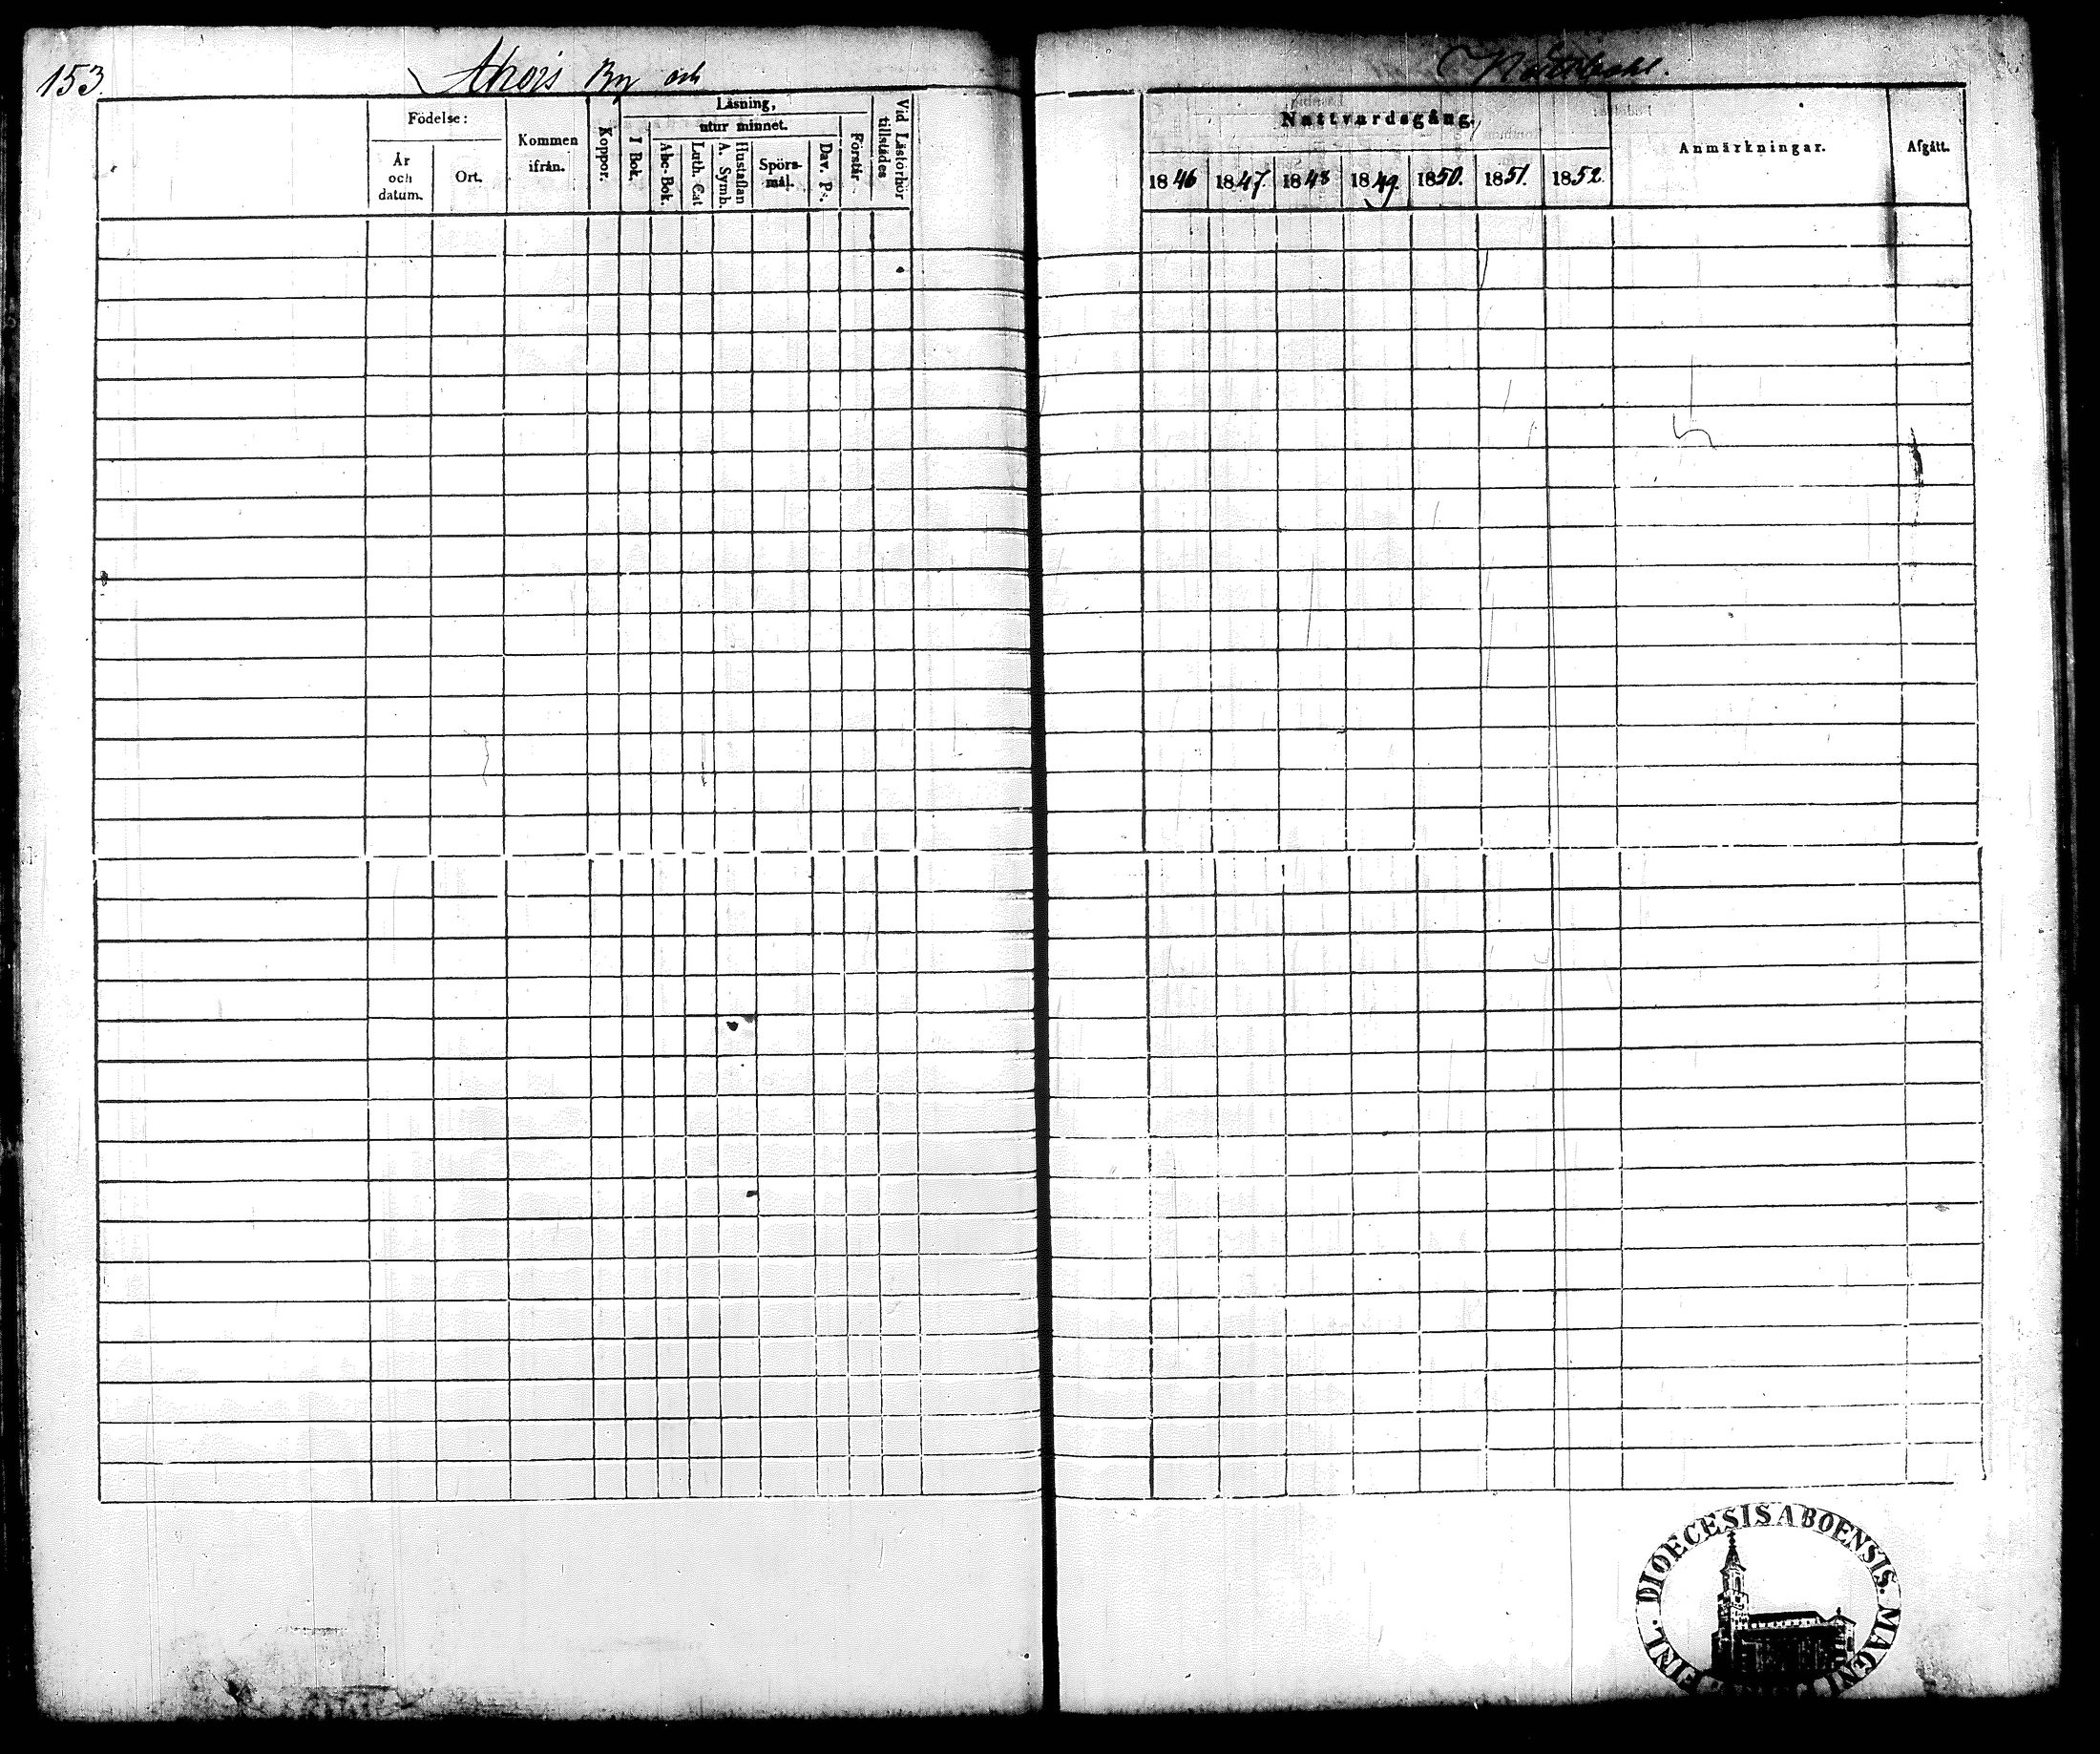 153.
Ahois By och
Födelse:
År
och
datum.
Ort.
Kommen
ifrån.
Koppor.
Läsning,
I Bok.
utur minnet.
Abc-Bok.
Luth. Cat
A. Symb.
Hustaflan
Spörs-
mål.
Dav. Ps.
Förstår
Vid Läsförhör
tillstädes
Nattvardsgång.
1846
1847.
1848
1849.
1850.
1851.
1852.
Anmärkningar.
Afgått.
FINL. DIOECESIS ABOENSIS. MAGNI